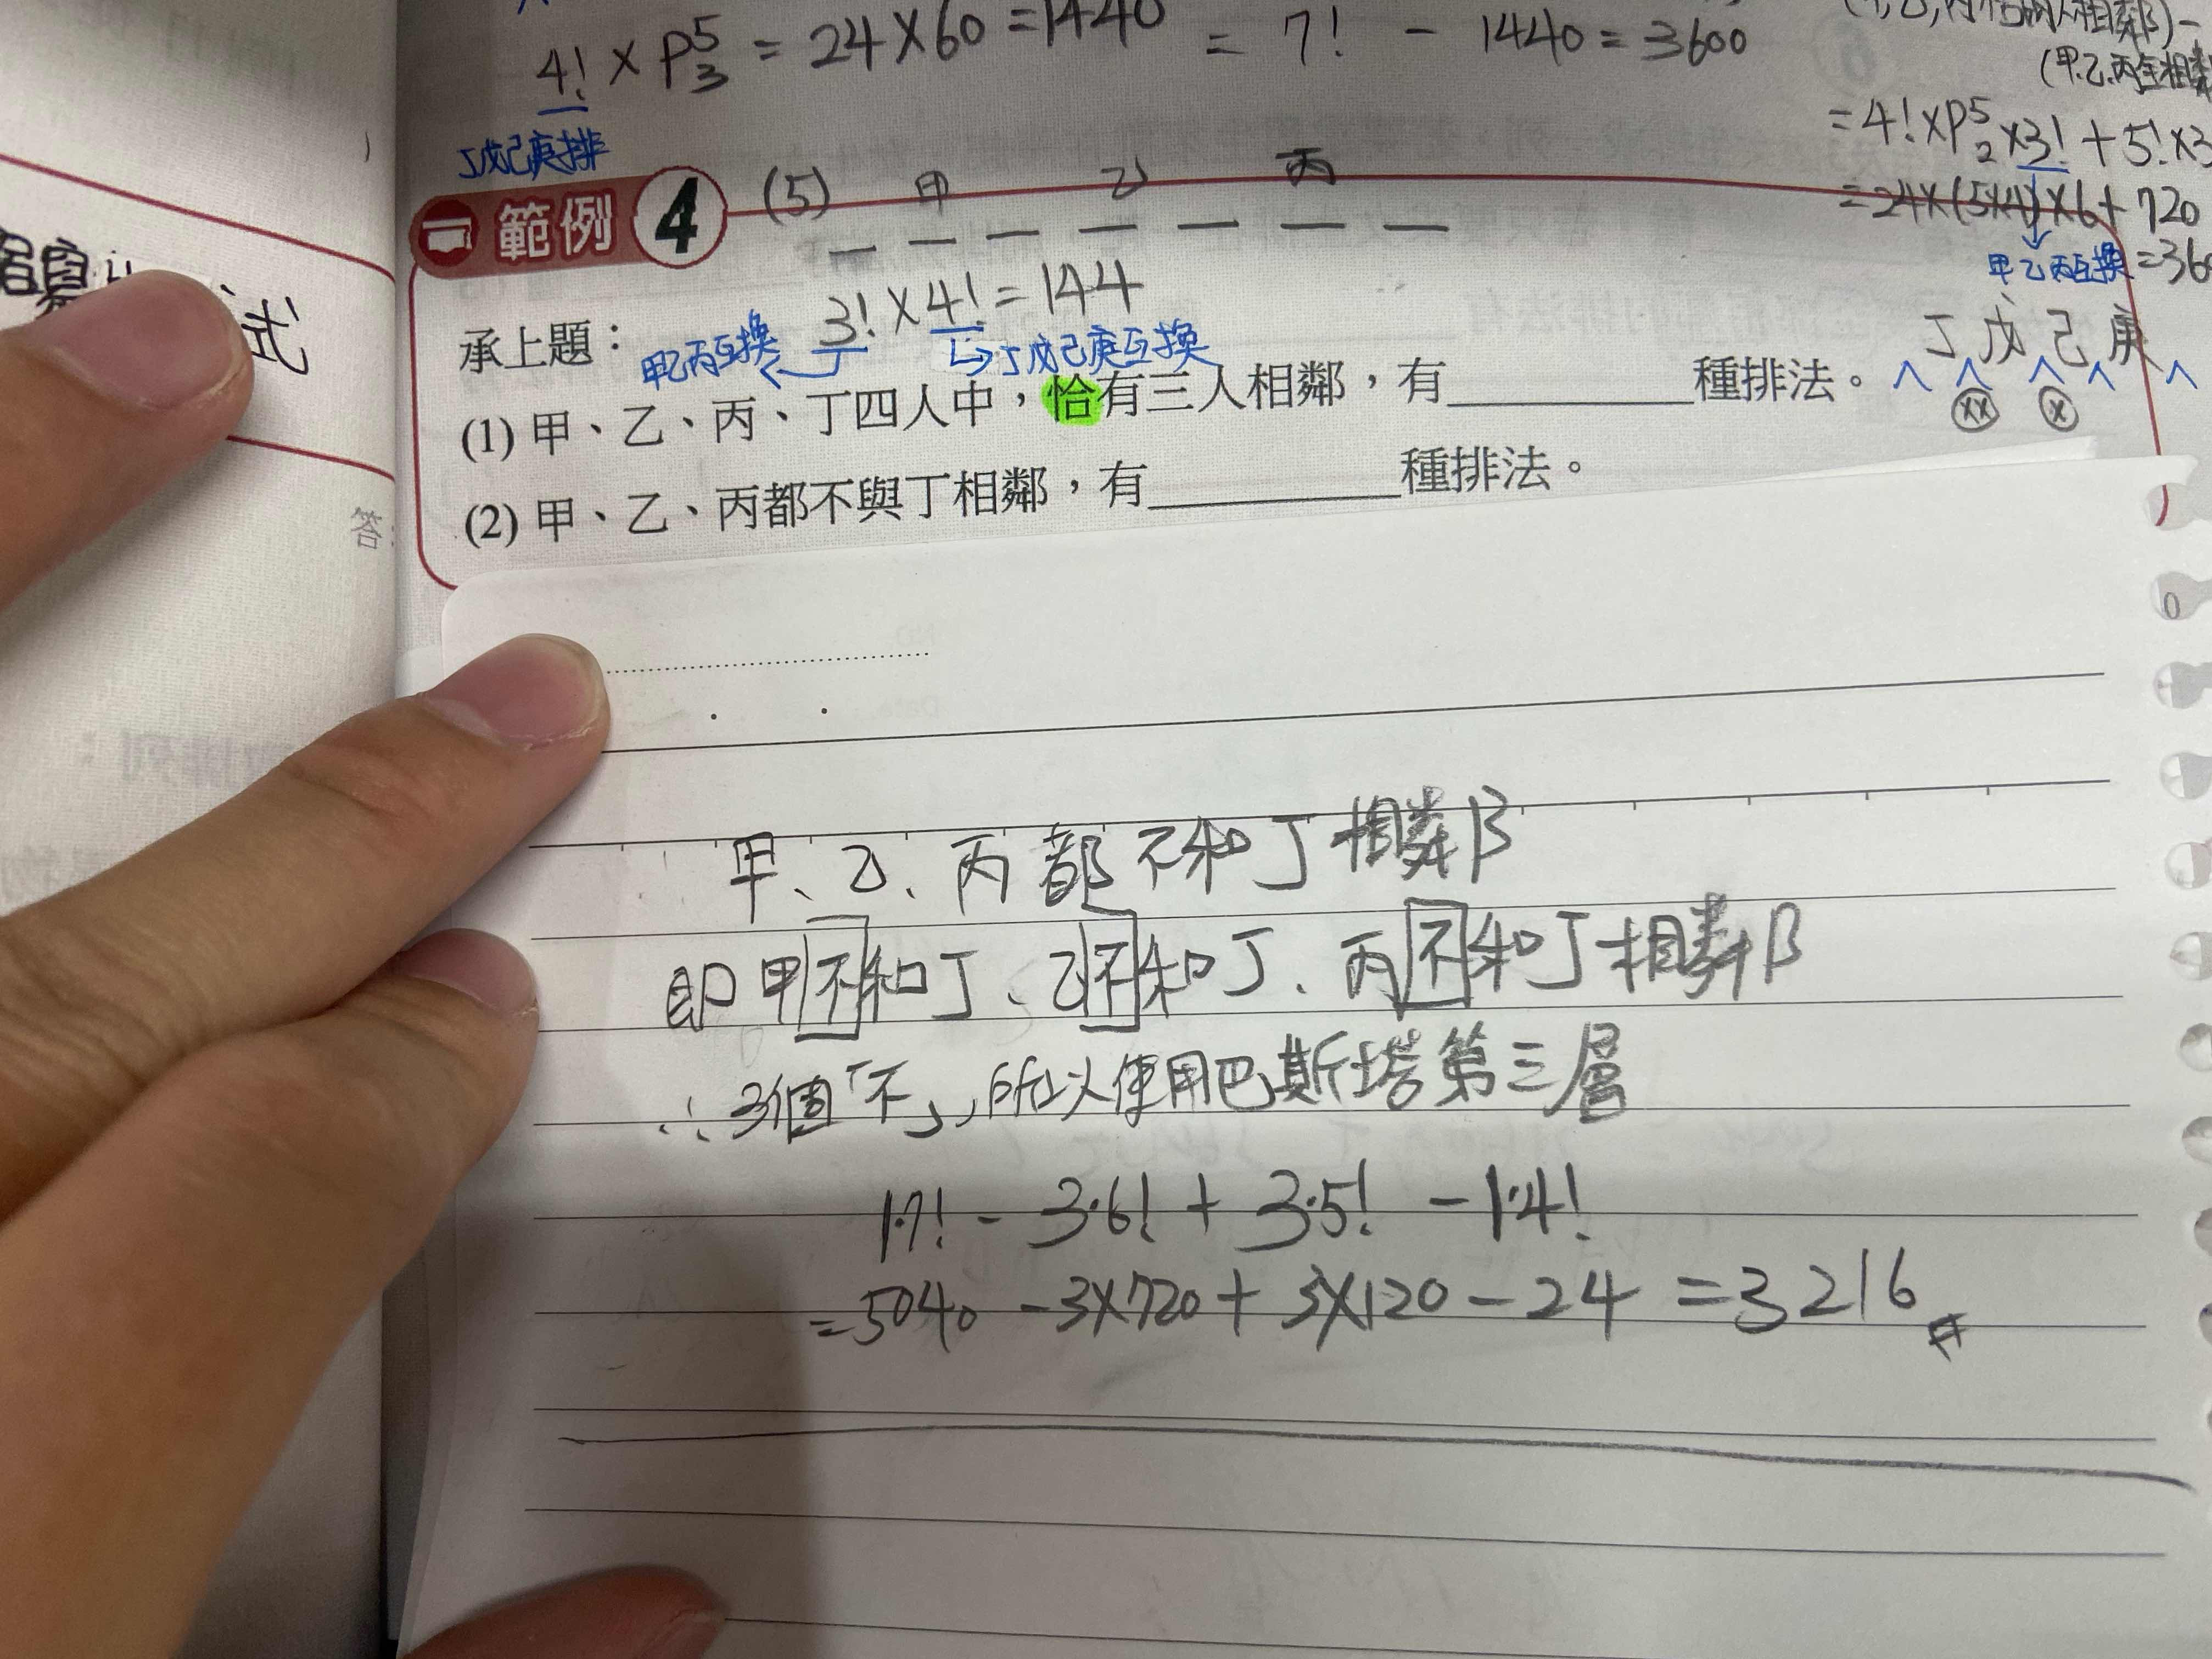 4! × P⁵₃ = 24 × 60 = 1440 = 7! - 1440 = 3600
丁戊己庚排
= 4! × P⁵₂ × 3! + 5! × 3
= 24 × (5×4) × 6 + 720
甲乙丙互換 = 36
範例 4
(5) 甲 乙 丙
3! × 4! = 144
甲乙丙互換
丁戊己庚互換
丁 戊 己 庚
承上題：
(1) 甲、乙、丙、丁四人中，恰有三人相鄰，有__________種排法。
(2) 甲、乙、丙都不與丁相鄰，有__________種排法。
試
答
甲、乙、丙都不和丁相鄰
即甲不和丁、乙不和丁、丙不和丁相鄰
∴ 3個「不」，所以使用巴斯塔第三層
1·7! - 3·6! + 3·5! - 1·4!
= 5040 - 3×720 + 3×120 - 24 = 3216